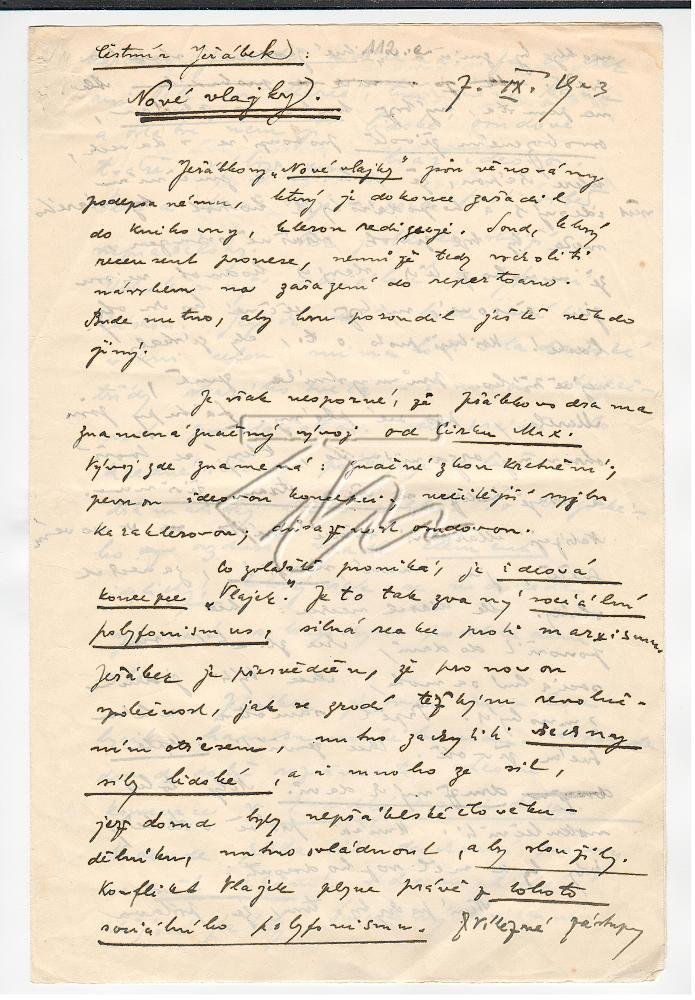 Čestmír Jeřábek: 112 a
Nové vlajky. 7. IX. 1923
Jeřábkovy „Nové vlajky" jsou věnovány
podepsanému, který je dokonce zařadil
do knihovny, kterou rediguje. Soud, který
recensent pronese, nemůže tedy vrcholiti
návrhem na zařazení do repertoaru.
Bude nutno, aby hru posoudil ještě někdo
jiný.
Je však nesporné, že Jeřábkovo drama
znamená značný vývoj od Cirku Max.
Vývoj zde znamená: značné zkonkretnění;
pevnou ideovou koncepci; určitější
karakterovou; dosažnost
Co zvláště proniká, je ideová
koncepce „Vlajek." Je to tak zvaný sociální
polyfonismus, silná reakce proti marxismu.
Jeřábek je přesvědčen, že pro novou
společnost, jak se zrodí těžkým revoluč-
ním otřesem, nutno zachytiti všechny
síly lidské, a i mnoho ze sil,
jež dosud byly nepřátelské člověku-
dělníku, nutno ovládnout, aby sloužily.
Konflikt Vlajek plyne právě z tohoto
sociálního polyfonismu. Vítězné zástupy